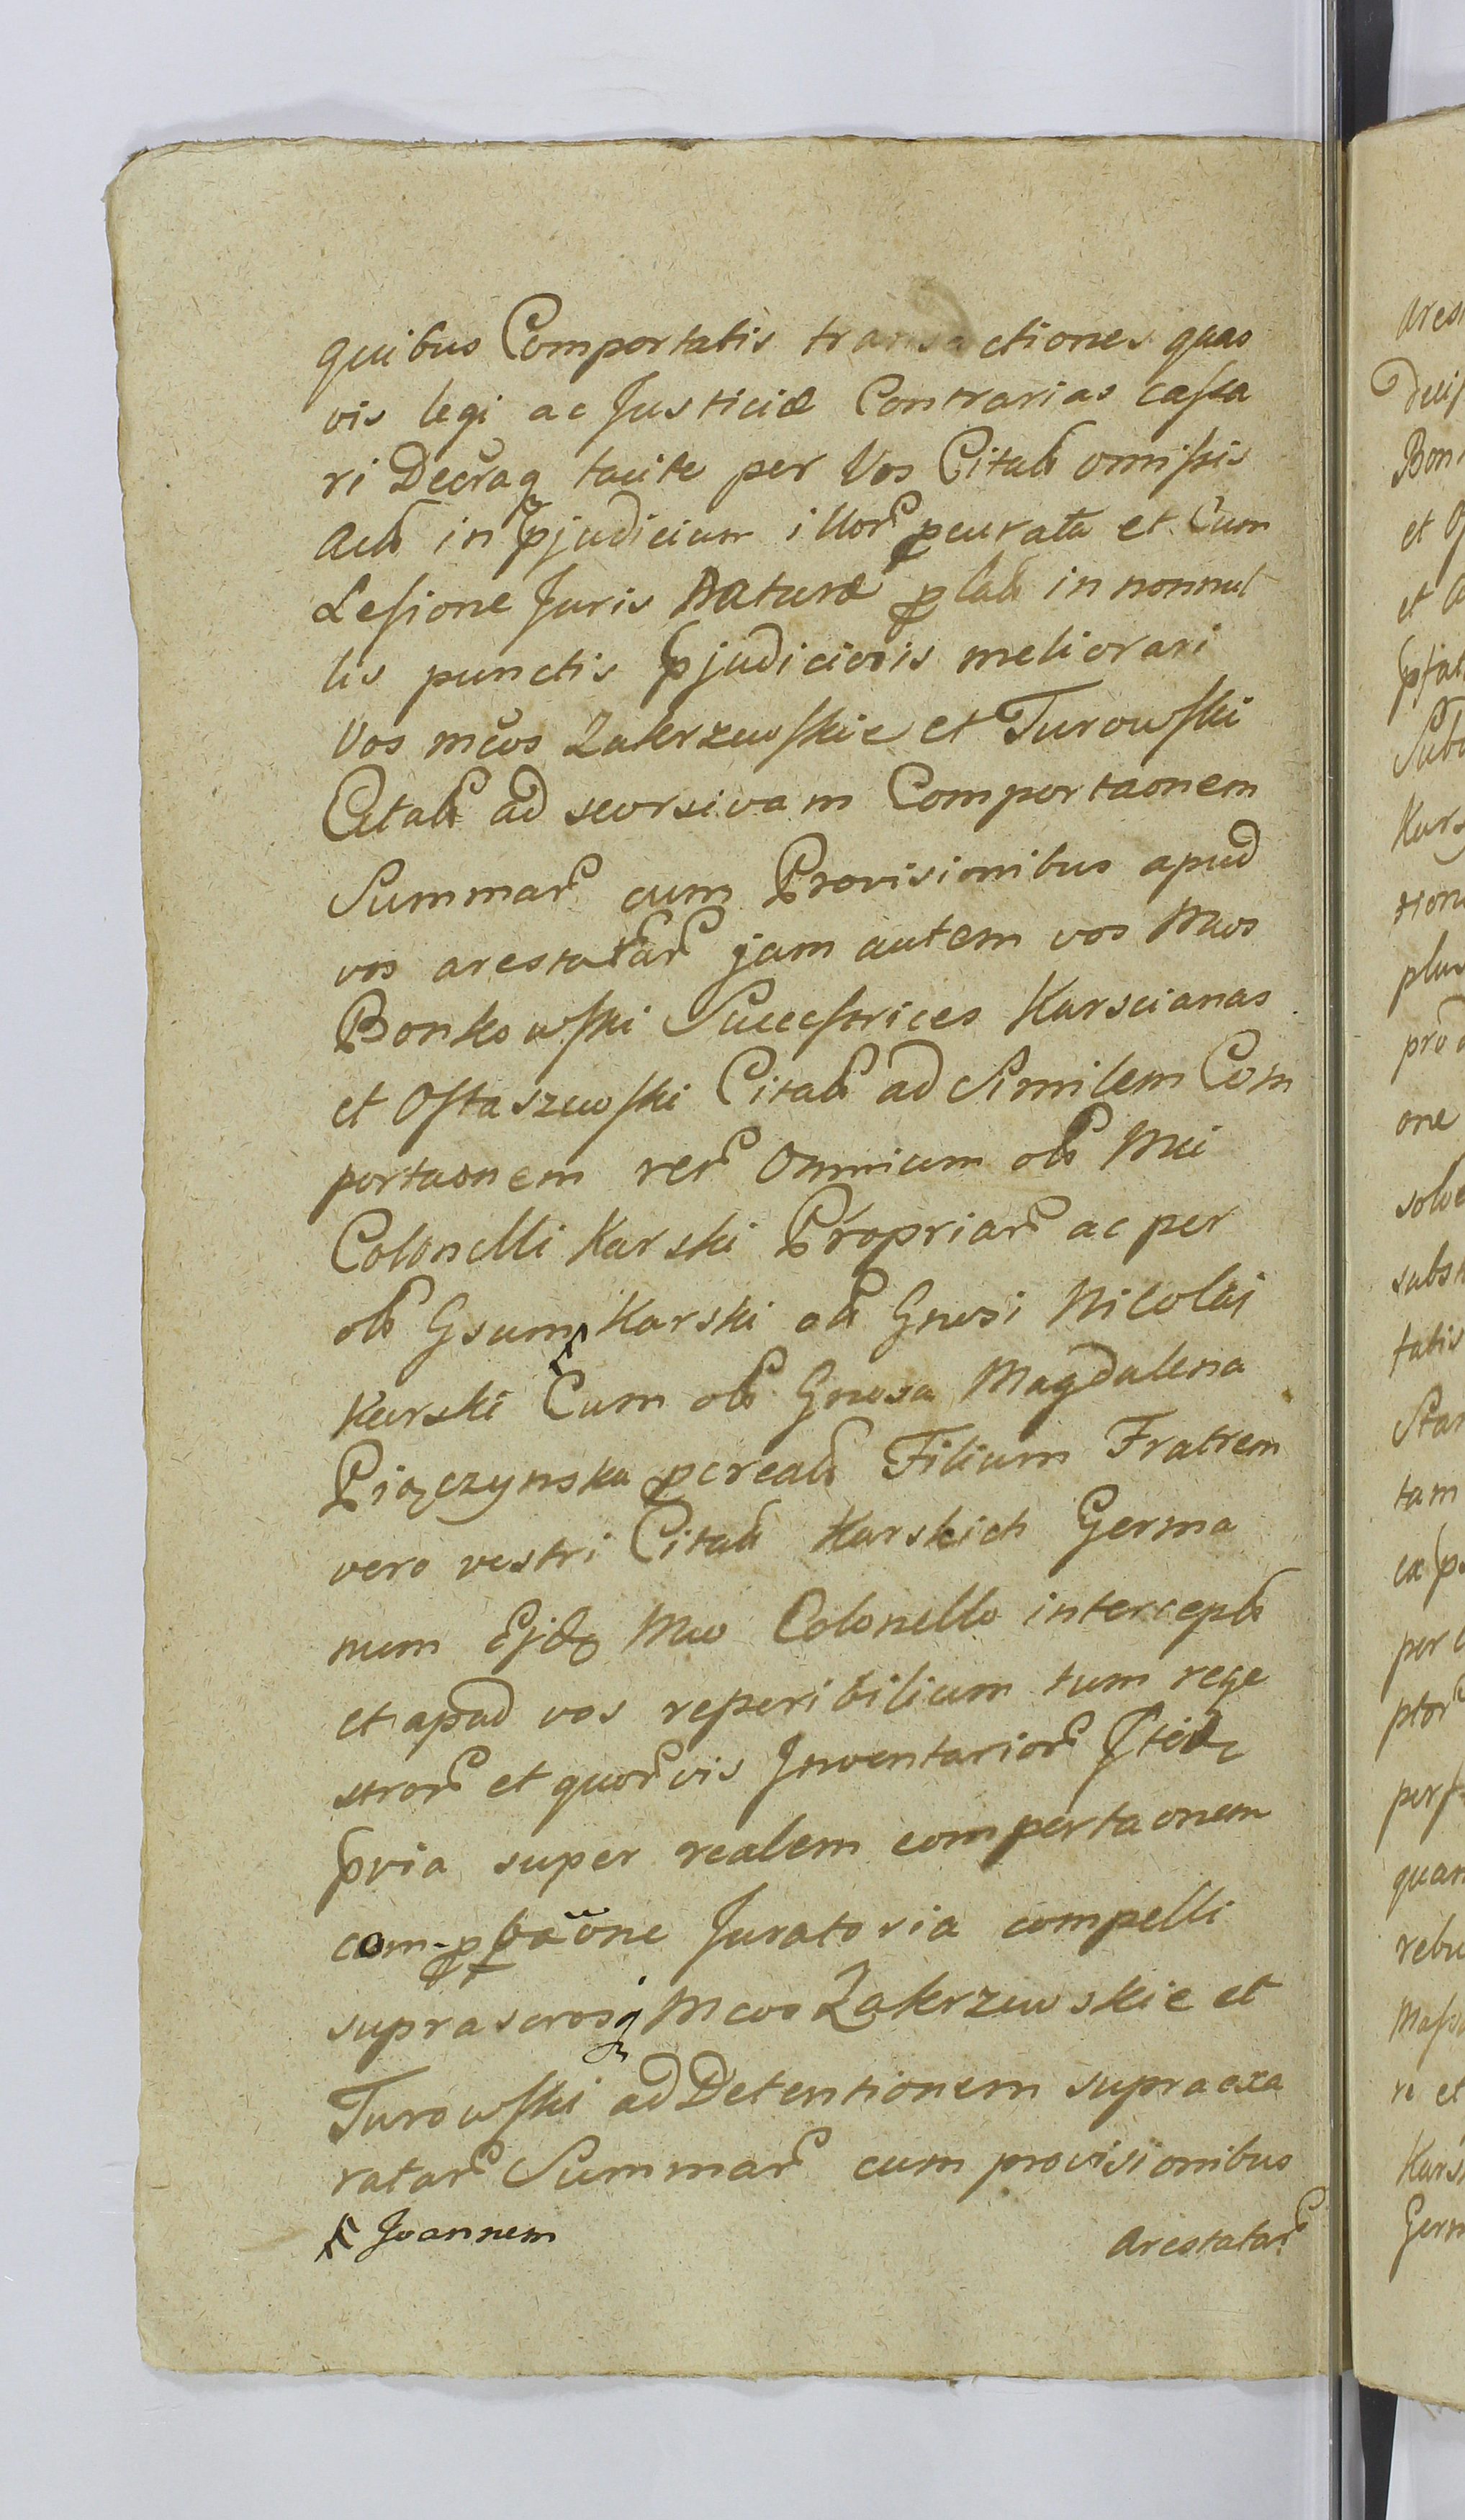 quibus Comportatis transactiones quas
vis legi ac Justiciæ Contrarias caſsa
ri Decraq tacite per Vos Citatt omiſsis
Actt in pjudicium illor pcurata et Cum
Leſione Juris Naturæ platt in nonnul
lis punctis pjudiciosis meliorari
Vos mcos Zakrzewſkie et Turowſki
Citatt ad seorsivam Comportaonem
Summar cum Provisionibus apud
vos arestatar jam autem vos Mcos
Bonkowſki Succeſsrices Karscianas
et Oſtaszewſki Citatt ad Similem Com
portaonem rer Omnium olim Mci
Colonelli Karski Propriar ac per
olim Gsum Karski olim Gnosi Nicolai
Karski Cum olim Gnosa Magdalena
Piączynska pcreatt Filium Fratrem
vero vestri Citatt Karskich Germa
num Ejdq Mco Colonello interceptt
et apud vos reperibilium tum rege
stror et quorvis Inventarior
pvia super realem comportaonem
com-pbaõne Juratoria compelli
suprascrosq Mcos Zakrzewskie et
Turowſki ad Detentionem supraexa
ratar Summar cum provisionibus
Joannem
Arestatar